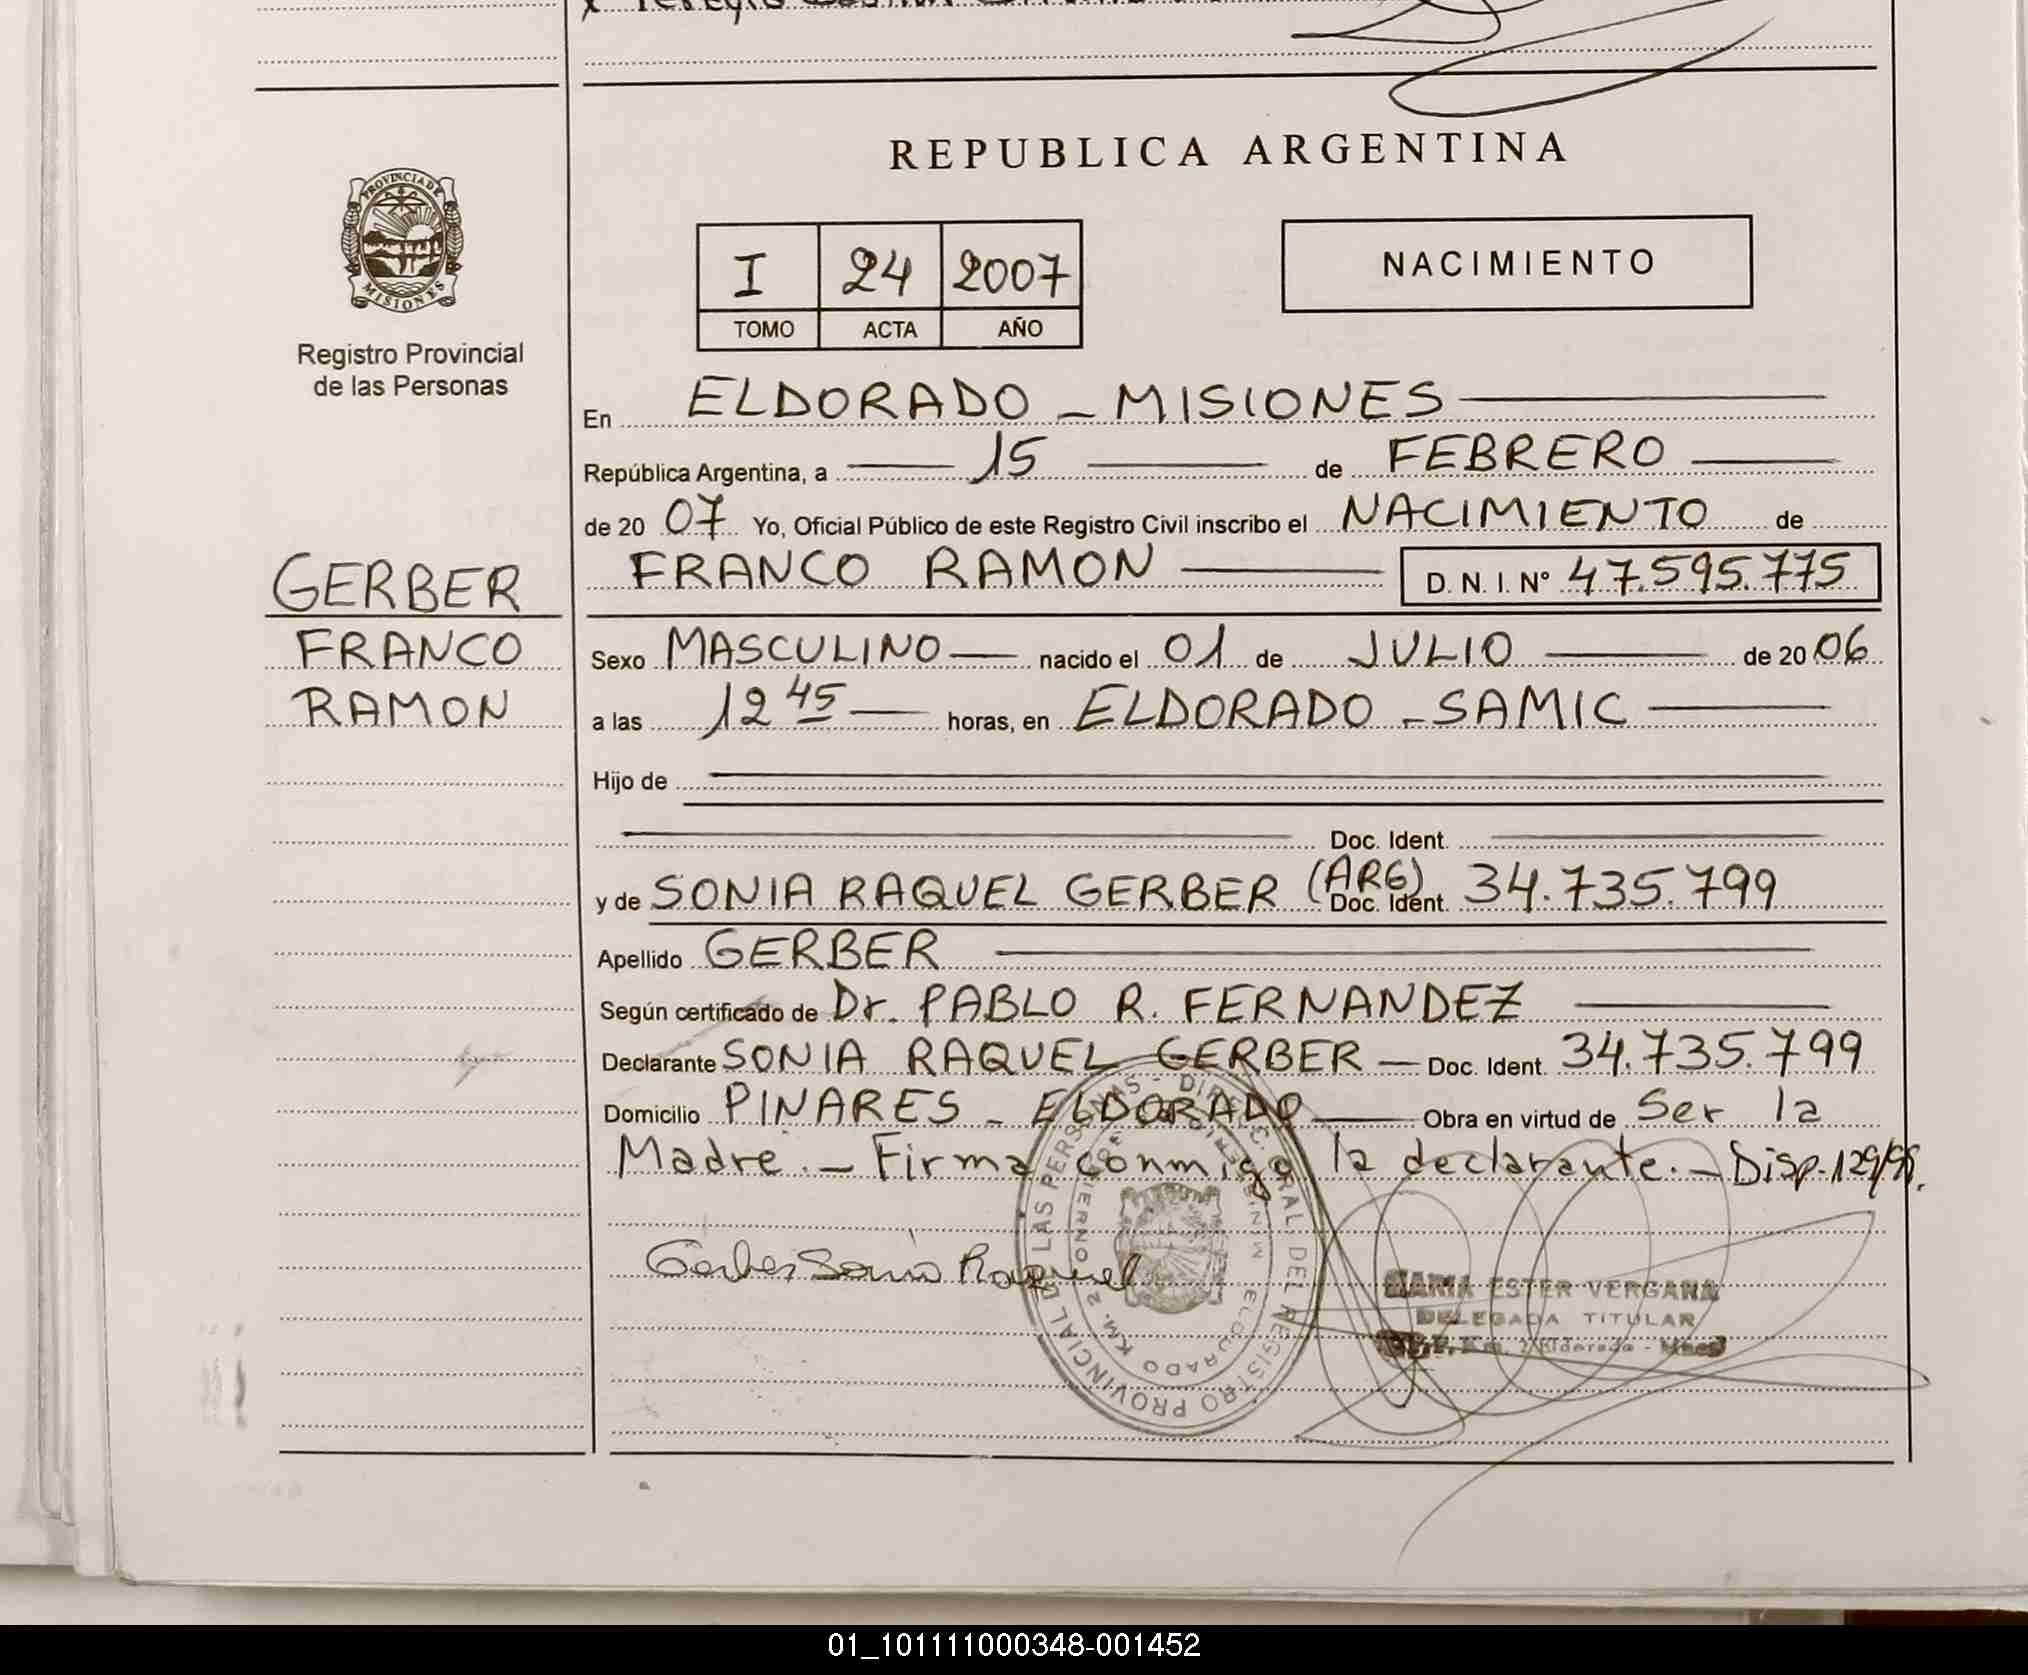 REPUBLICA ARGENTINA
PROVINCIA DE
MISIONES
Registro Provincial
de las Personas
I 24 2007
TOMO ACTA AÑO
NACIMIENTO
En ELDORADO - MISIONES
República Argentina, a 15 de FEBRERO
de 20 07 Yo, Oficial Público de este Registro Civil inscribo el NACIMIENTO de
GERBER
FRANCO
RAMON
FRANCO RAMON D. N. I. Nº 47.595.775
Sexo MASCULINO nacido el 01 de JULIO de 20 06
a las 12 45 horas, en ELDORADO - SAMIC
Hijo de
Doc. Ident.
y de SONIA RAQUEL GERBER (ARG) Doc. Ident. 34.735.799
Apellido GERBER
Según certificado de Dr. PABLO R. FERNANDEZ
Declarante SONIA RAQUEL GERBER Doc. Ident. 34.735.799
Domicilio PINARES - ELDORADO Obra en virtud de Ser la
Madre. - Firma conmigo la declarante. - Disp. 129/98.
Gerber Sonia Raquel
MARIA ESTER VERGARA
DELEGADA TITULAR
Km. 2 Eldorado - Mnes
REGISTRO PROVINCIAL DE LAS PERSONAS - DIRECC. GRAL. DEL
ELDORADO KM. 2
01_101111000348-001452